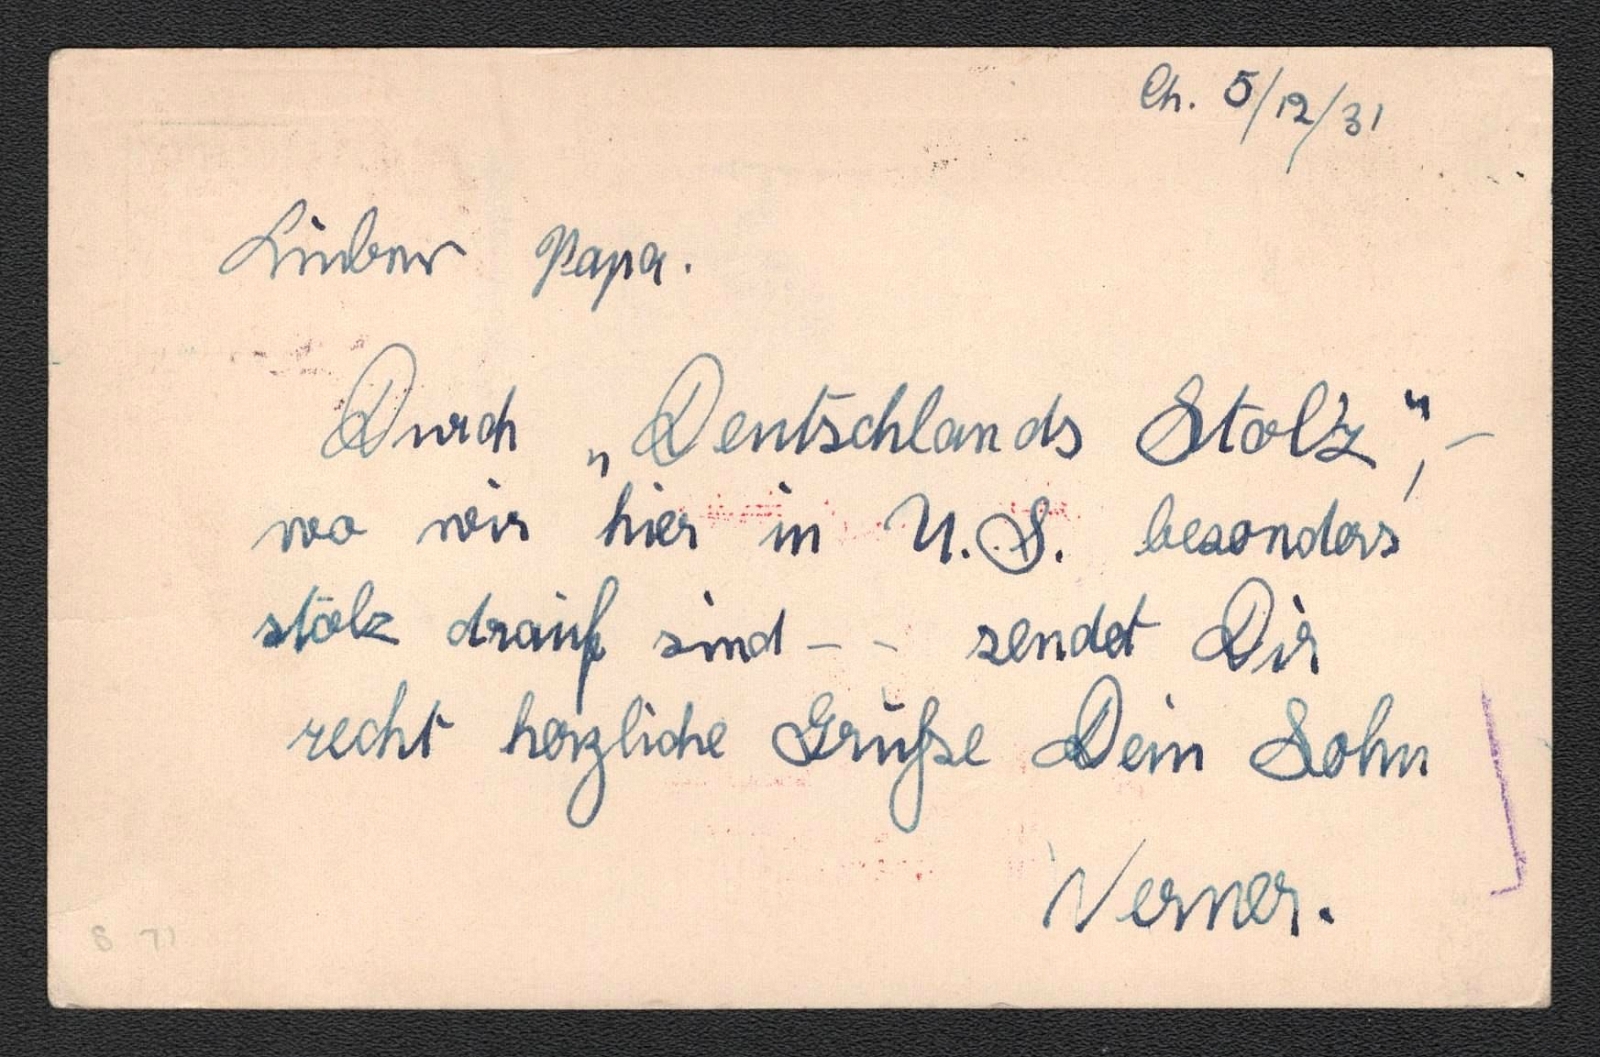 Ch. 5/12/31
Lieber Papa.
Durch „Deutschlands Stolz“, –
wo wir hier in U.S. besonders
stolz drauf sind – – sendet Dir
recht herzliche Grüße Dein Sohn
Werner.
S 71